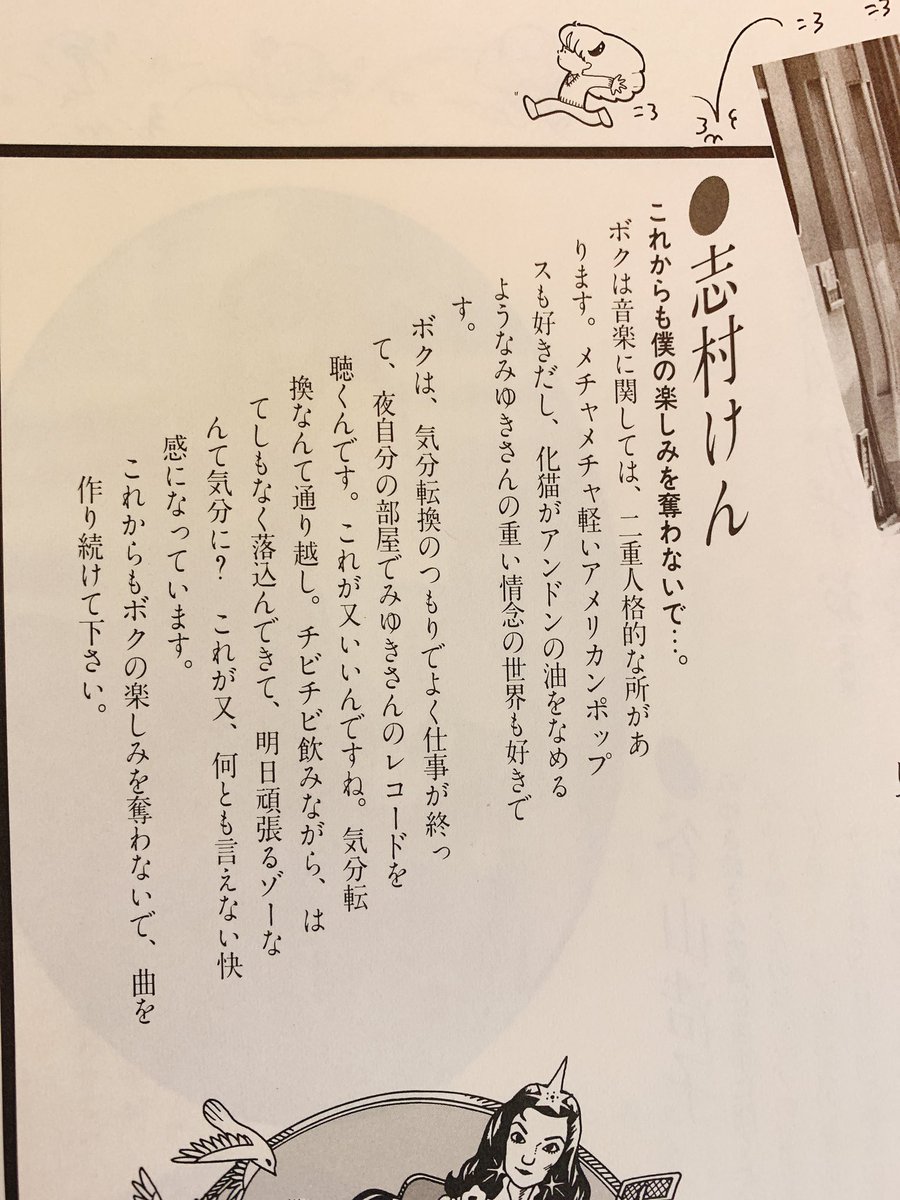 志村けん
これからも僕の楽しみを奪わないで…。
ボクは音楽に関しては、二重人格的な所があ
ります。メチャメチャ軽いアメリカンポップ
スも好きだし、化猫がアンドンの油をなめる
ようなみゆきさんの重い情念の世界も好きで
す。
ボクは、気分転換のつもりでよく仕事が終っ
て、夜自分の部屋でみゆきさんのレコードを
聴くんです。これが又いいんですね。気分転
換なんて通り越し。チビチビ飲みながら、は
てしもなく落込んできて、明日頑張るゾーな
んて気分に？ これが又、何とも言えない快
感になっています。
これからもボクの楽しみを奪わないで、曲を
作り続けて下さい。